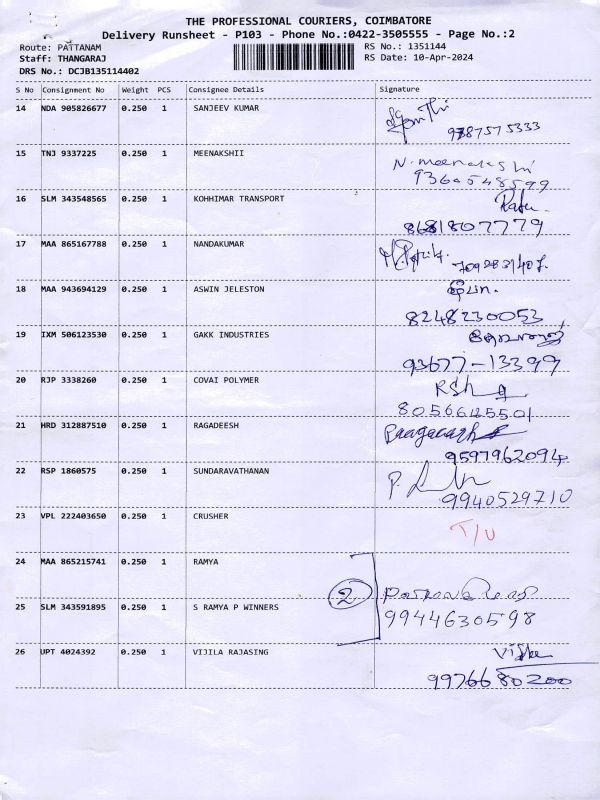 THE PROFESSIONAL COURIERS, COIMBATORE
Delivery Runsheet - P103 - Phone No.:0422-3505555 - Page No.:2
Route: PATTANAM RS No.: 1351144
Staff: THANGARAJ RS Date: 10-Apr-2024
DRS No.: DCJB135114402
S No Consignment No Weight PCS Consignee Details Signature
14 NDA 905826677 0.250 1 SANJEEV KUMAR
15 TNJ 9337225 0.250 1 MEENAKSHII N. meenakshi
9360548599
16 SLM 343548565 0.250 1 KOHHIMAR TRANSPORT
8681807779
17 MAA 865167788 0.250 1 NANDAKUMAR
18 MAA 943694129 0.250 1 ASWIN JELESTON
8248230053
19 IXM 506123530 0.250 1 GAKK INDUSTRIES
93677-13399
20 RJP 3338260 0.250 1 COVAI POLYMER
8056645501
21 HRD 312887510 0.250 1 RAGADEESH
9597962094
22 RSP 1860575 0.250 1 SUNDARAVATHANAN
9940529710
23 VPL 222403650 0.250 1 CRUSHER T/U
24 MAA 865215741 0.250 1 RAMYA
2
25 SLM 343591895 0.250 1 S RAMYA P WINNERS 9944630598
26 UPT 4024392 0.250 1 VIJILA RAJASING
9976680200